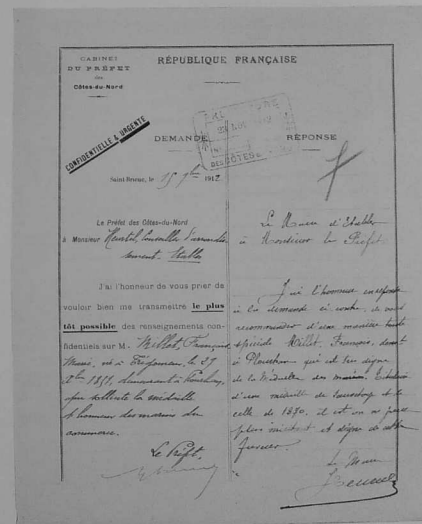 CABINET
DU PRÉFET
des
Côtes-du-Nord
RÉPUBLIQUE FRANÇAISE
CONFIDENTIELLE & URGENTE
DEMANDE
Saint-Brieuc, le 15 7bre 1912
Le Préfet des Côtes-du-Nord
à Monsieur Heurtel, Conseiller d'arrondis-
sement. Etables
J'ai l'honneur de vous prier de
vouloir bien me transmettre le plus
tôt possible des renseignements con-
fidentiels sur M. Millot, François
Marie, né à le 27
1851, demeurant à
qui sollicite la médaille
d'honneur des marins du
commerce.
Le Préfet.
RÉPONSE
Le Maire d'Etables
à Monsieur le Préfet
J'ai l'honneur en réponse
à la demande ci contre, de vous
recommander d'une manière toute
spéciale Millot, François, demt
à Plourhan qui est très digne
de la Médaille des marins. Titulaire
d'une médaille de et de
celle de 1870, il est on ne peut
plus méritant et digne de cette
faveur.
Le Maire